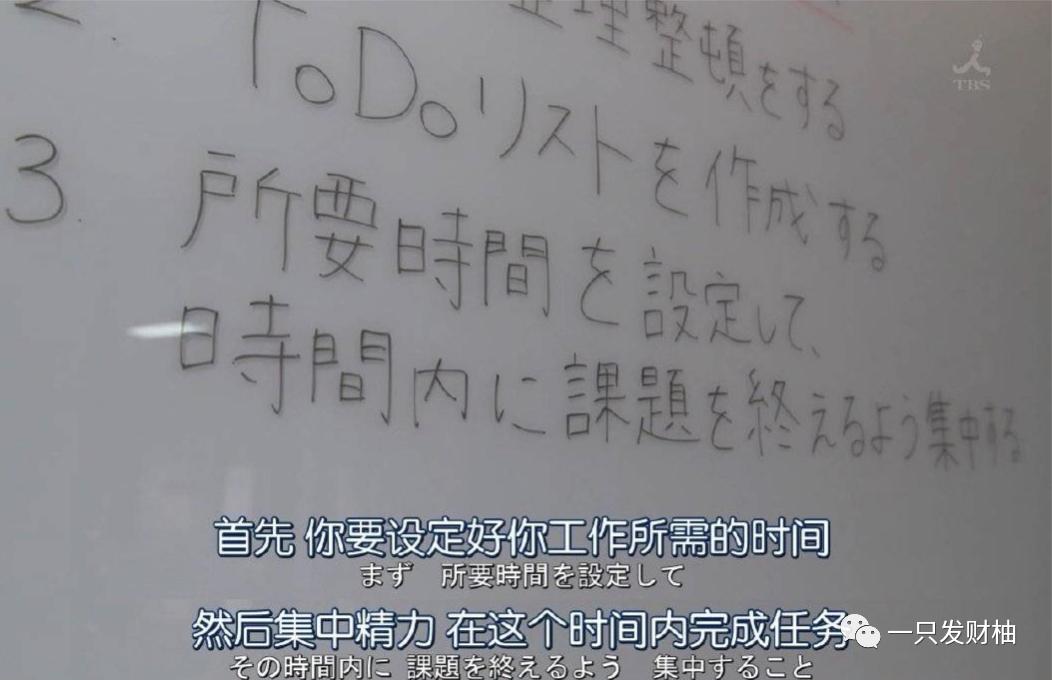 整理整頓をする
TBS
2. ToDoリストを作成する
3. 所要時間を設定して、
時間内に課題を終えるよう集中する
首先 你要设定好你工作所需的时间
まず 所要時間を設定して
然后集中精力 在这个时间内完成任务
その時間内に 課題を終えるよう 集中すること
一只发财柚